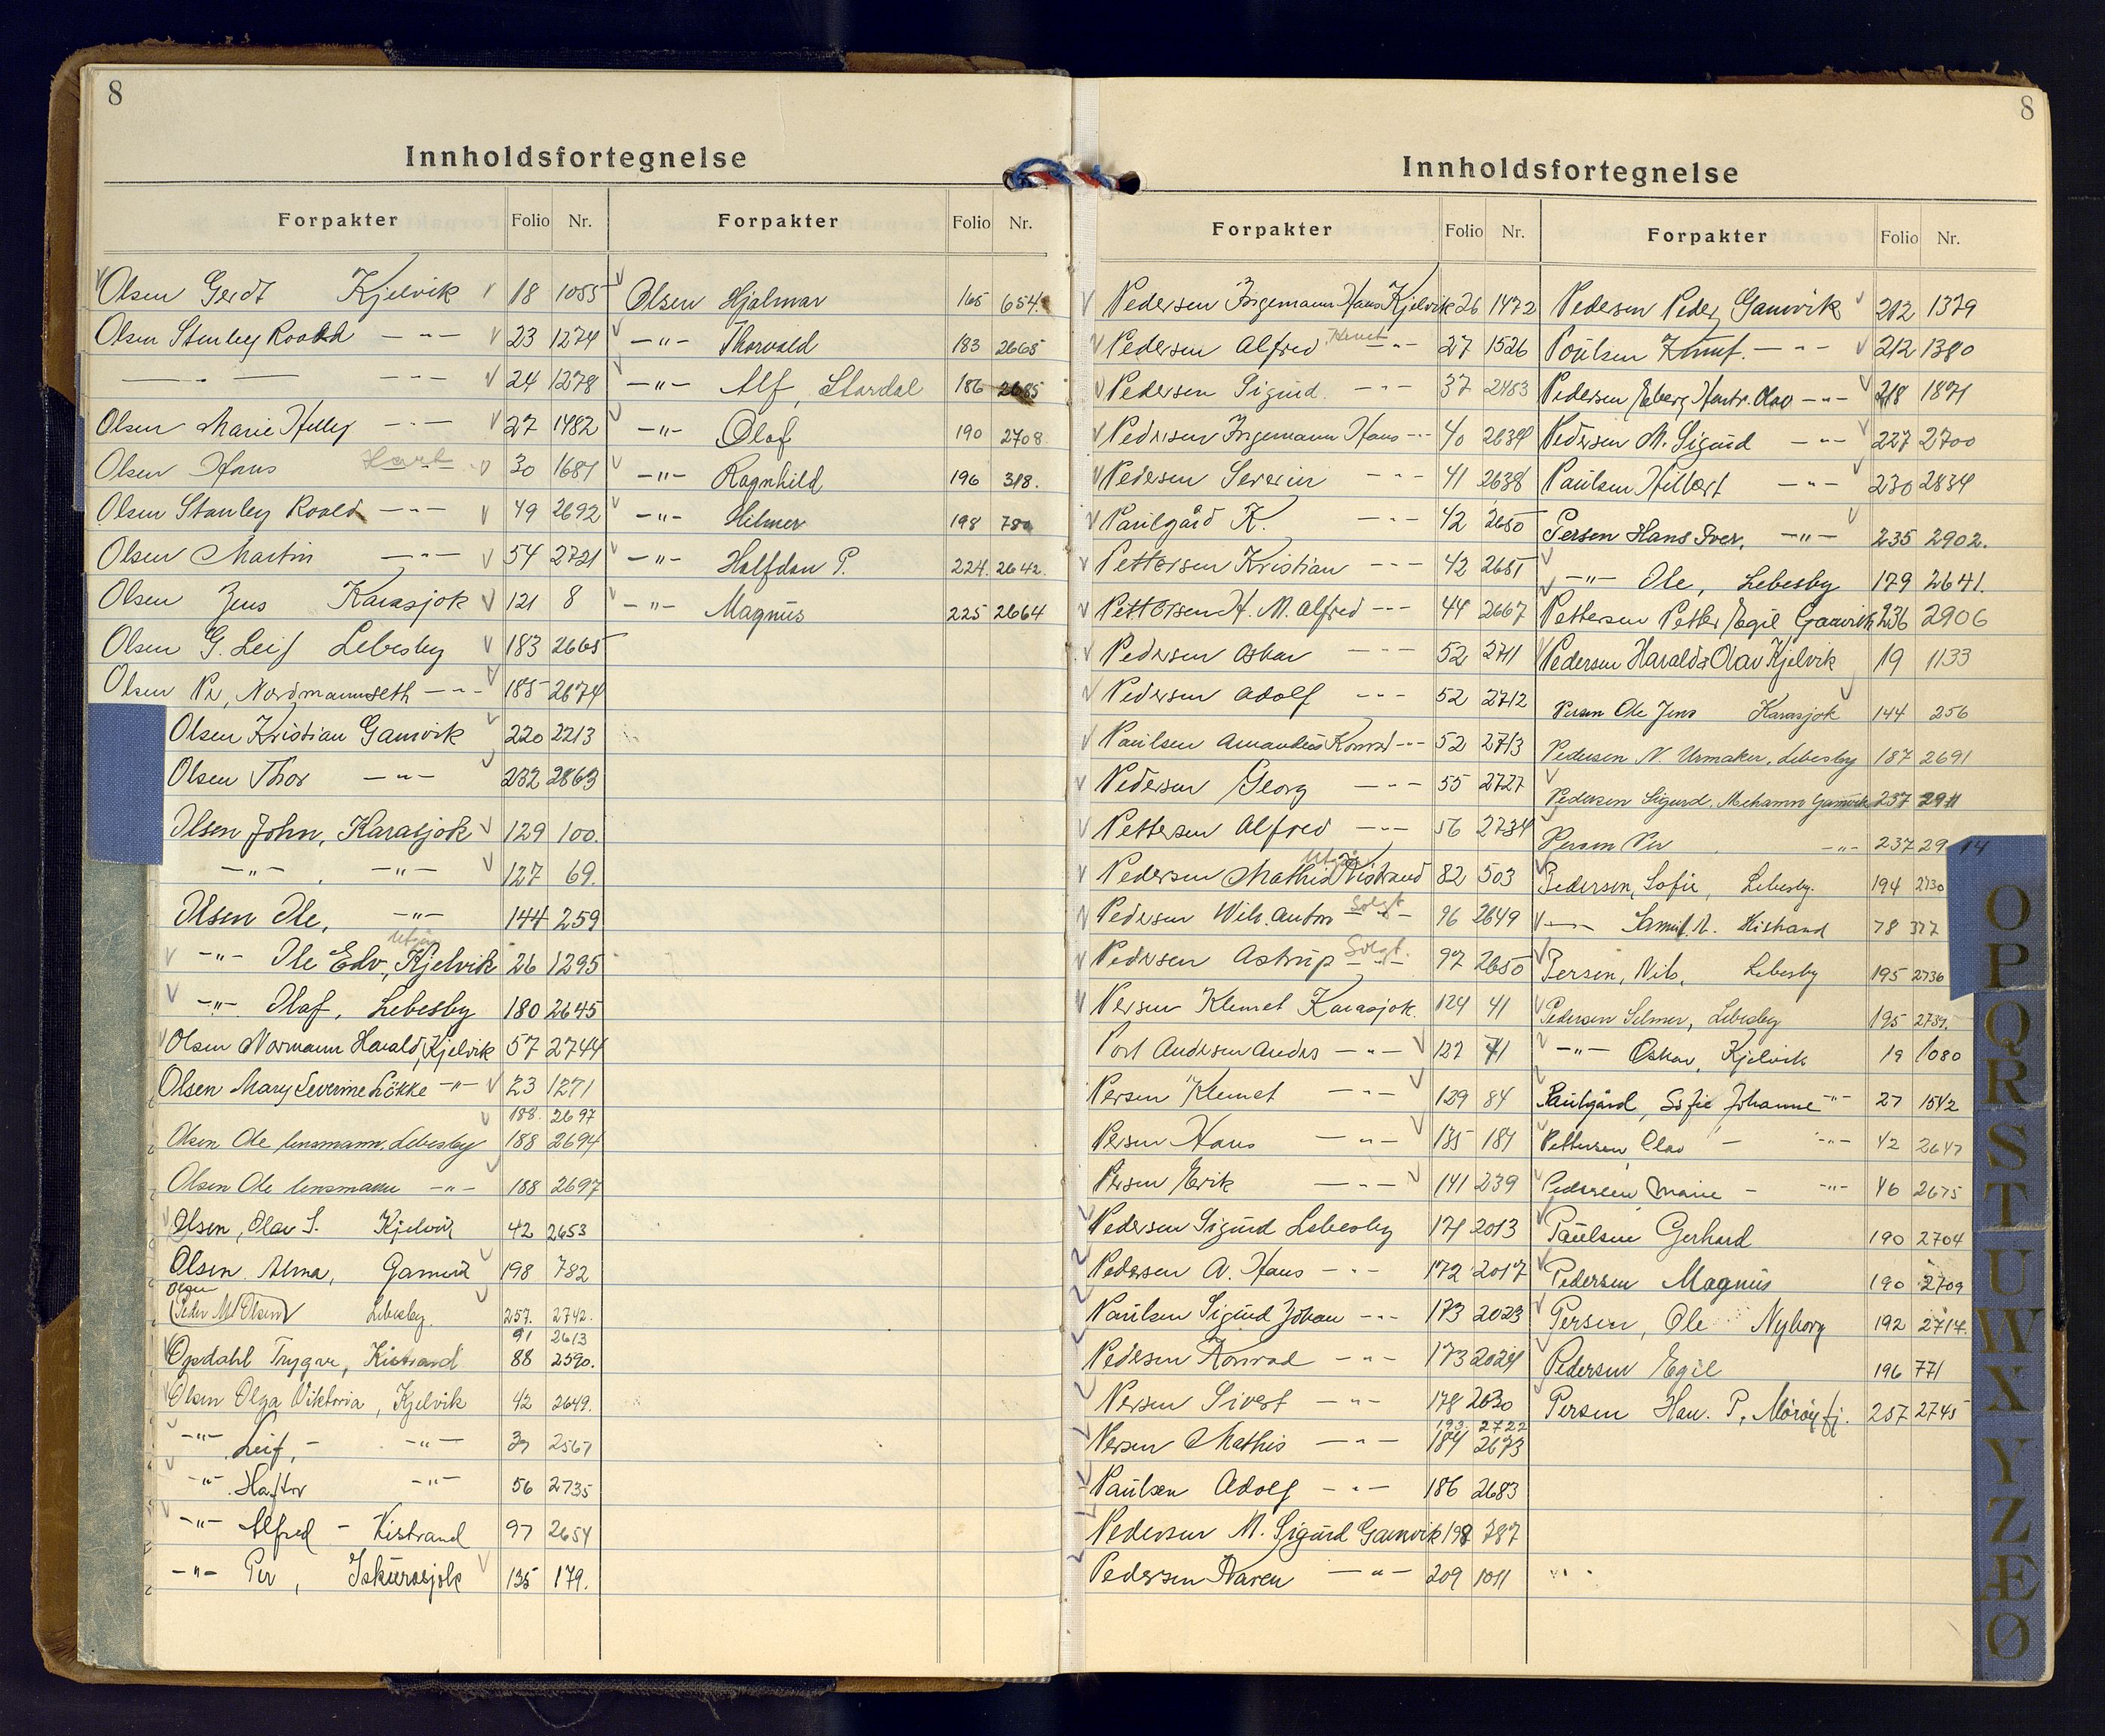 8
Innholdsfortegnelse
Forpakter Folio Nr.
Olsen Gerdt Kjelvik 18 1055
Olsen Stanley Roald —"— 23 1274
—"— —"— 24 1278
Olsen Marie Helly —"— 27 1482
Olsen Hans —"— 30 1681
Olsen Stanley Roald —"— 49 2692
Olsen Martin —"— 54 2721
Olsen Jens Karasjok 121 8
Olsen G. Leif Lebesby 183 2665
Olsen Pe, Nordmannseth —"— 185 2674
Olsen Kristian Gamvik 220 2213
Olsen Thor —"— 232 2863
Olsen John, Karasjok 129 100.
—"— , —"— 127 69.
Olsen Ole, —"— 144 259
Utgår
—"— Ole Edv, Kjelvik 26 1295
—"— Olaf, Lebesby 180 2645
Olsen Normann Harald, Kjelvik 57 2744
Olsen Mary Severine Løkke —"— 23 1271
188. 2697
Olsen Ole lensmann, Lebesby 188 2694
Olsen Ole lensmann —"— 188 2697
Olsen, Olav S. Kjelvik 42 2653
Olsen Alma, Gamvik 198 782
(Peder M. Olsen) Lebesby. 257. 2742.
91 2613
Opdahl Trygve, Kistrand 88 2590.
Olsen Olga Viktoria, Kjelvik 42 2649.
—"— Leif, — —"— 39 2567
—"— Haftor —"— 56 2735
—"— Alfred — Kistrand 97 2654
—"— Per, Iskurasjok 135 179.
Forpakter Folio Nr.
Olsen Hjalmar 165 654.
—"— Thorvald 183 2665
—"— Alf, Stordal 186 2685
—"— Olaf 190 2708
—"— Ragnhild 196 318.
—"— Hilmer 198 780
—"— Halfdan P. 224. 2642.
—"— Magnus 225 2664
8
Innholdsfortegnelse
Forpakter Folio Nr.
Pedersen Ingemann Hans Kjelvik 26 1472
Pedersen Alfred —"— 27 1526
Pedersen Sigurd. —"— 37 2453
Pedersen Ingemann Hans —"— 40 2634
Pedersen Severin —"— 41 2638
Paulgård K. —"— 42 2650
Pettersen Kristian —"— 42 2651
Pettersen H. M. Alfred —"— 44 2667
Pedersen Oskar —"— 52 2711
Pedersen Adolf —"— 52 2712
Paulsen Amandeus Konrad —"— 52 2713
Pedersen Georg —"— 55 2727
Pettersen Alfred —"— 56 2734
Utgår
Pedersen Mathis Kistrand 82 503
Pedersen Wilh. Anton —"— Solgt 96 2649
Pedersen Astrup —"— Solgt. 97 2650
Persen Klemet Karasjok. 124 41
Port Andersen Anders —"— 127 71
Persen Klemet —"— 129 84
Persen Hans —"— 135 181
Persen Erik —"— 141 239
Pedersen Sigurd Lebesby 171 2013
Pedersen A. Hans —"— 172 2017
Paulsen Sigurd Johan —"— 173 2023
Pedersen Konrad —"— 173 2024
Persen Sivert —"— 178 2630
193. 2722
Persen Mathis —"— 184 2673
Paulsen Adolf —"— 186 2683
Pedersen M. Sigurd Gamvik 198 787
Pedersen Karen —"— 209 1011
Forpakter Folio Nr.
Pedersen Peder Gamvik 212 1379
Poulsen Knut. —"— 212 1380
Pedersen Olav —"— 218 1871
Pedersen M. Sigurd —"— 227 2700
Paulsen Hilbert —"— 230 2834
Persen Hans Iver. —"— 235 2902.
—"— Ole, Lebesby 179 2641.
Pettersen Petter Egil Gamvik 236 2906
Pedersen Harald Olav Kjelvik 19 1133
Persen Ole Jens Karasjok 144 256
Pedersen N. Urmaker, Lebesby 187 2691
Pedersen Sigurd, Mehamn Gamvik 237 2911
Persen Per —"— 237 2914
Pedersen, Sofie, Lebesby. 194 2730
—"— Samuel. A. Kistrand 78 377
Persen, Nils, Lebesby 195 2736
Pedersen Selmer, Lebesby 195 2737.
—"— Oskar, Kjelvik 19 1080
Paulgård, Sofie Johanne —"— 27 1542
Pettersen, Olav — —"— 42 2647
Pedersen Marie — —"— 46 2675
Paulsen Gerhard 190 2704
Pedersen Magnus 190 2709
Persen, Ole Nyborg 192 2717.
Pedersen Egil 196 771
Persen Han. P. 257 2745
O
P
Q
R
S
T
U
W
X
Y
Z
Æ
Ø